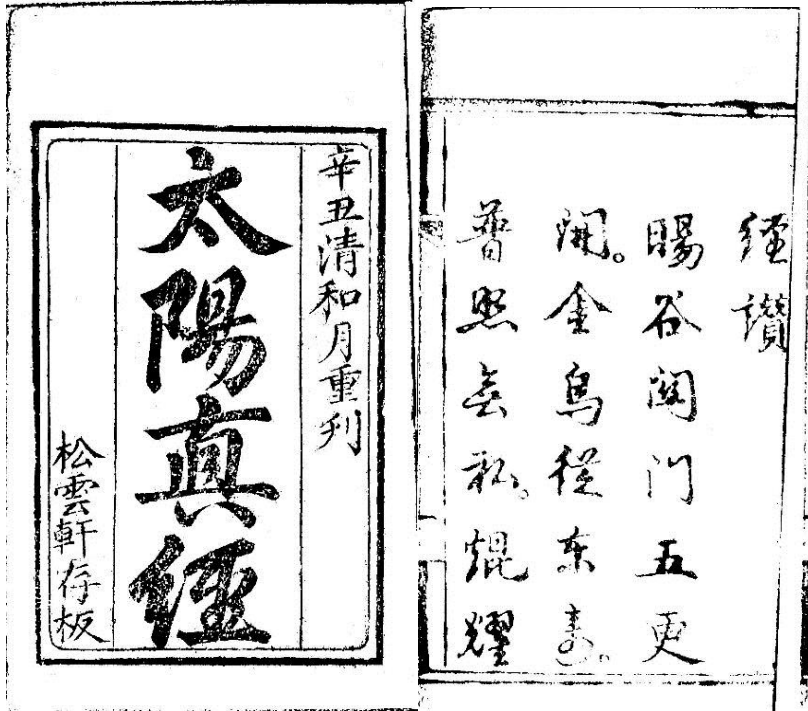 辛丑清和月重刊
太陽真經
松雲軒存板
經讚
暘谷關门五更
開。金烏從东来。
普照無私。焜耀